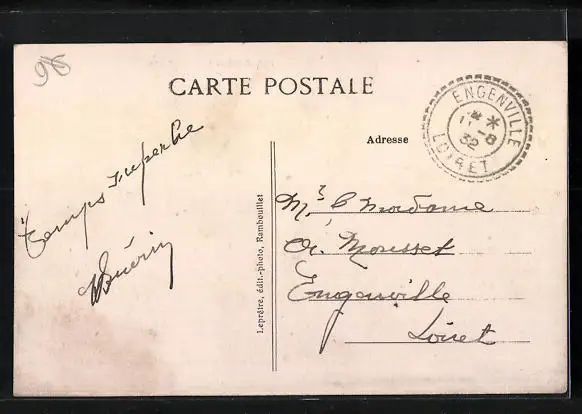 96
CARTE POSTALE
ENGENVILLE
* 11-8
32
LOIRET
Adresse
temps superbe
Guérin
Leprêtre, édit.-photo, Rambouillet
Mr & Madame
A. Mousset
Engenville
Loiret